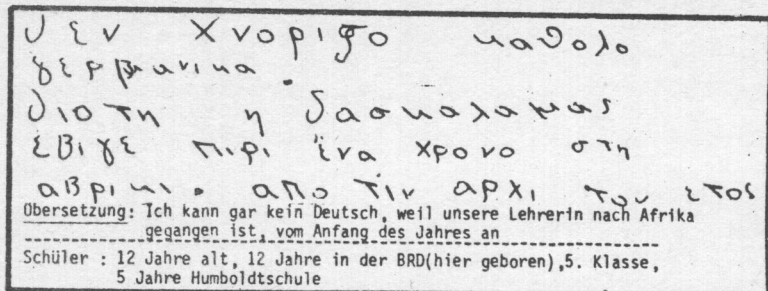 δεν χνοριζο καθολο
γερμανικα.
διοτη η δασκαλαμας
εβιγε πιρι ένα χρονο στη
αβρικι. απο τιν αρχι του ετος
Obersetzung: Ich kann gar kein Deutsch, weil unsere Lehrerin nach Afrika
gegangen ist, vom Anfang des Jahres an
Schüler : 12 Jahre alt, 12 Jahre in der BRD(hier geboren),5. Klasse,
5 Jahre Humboldtschule